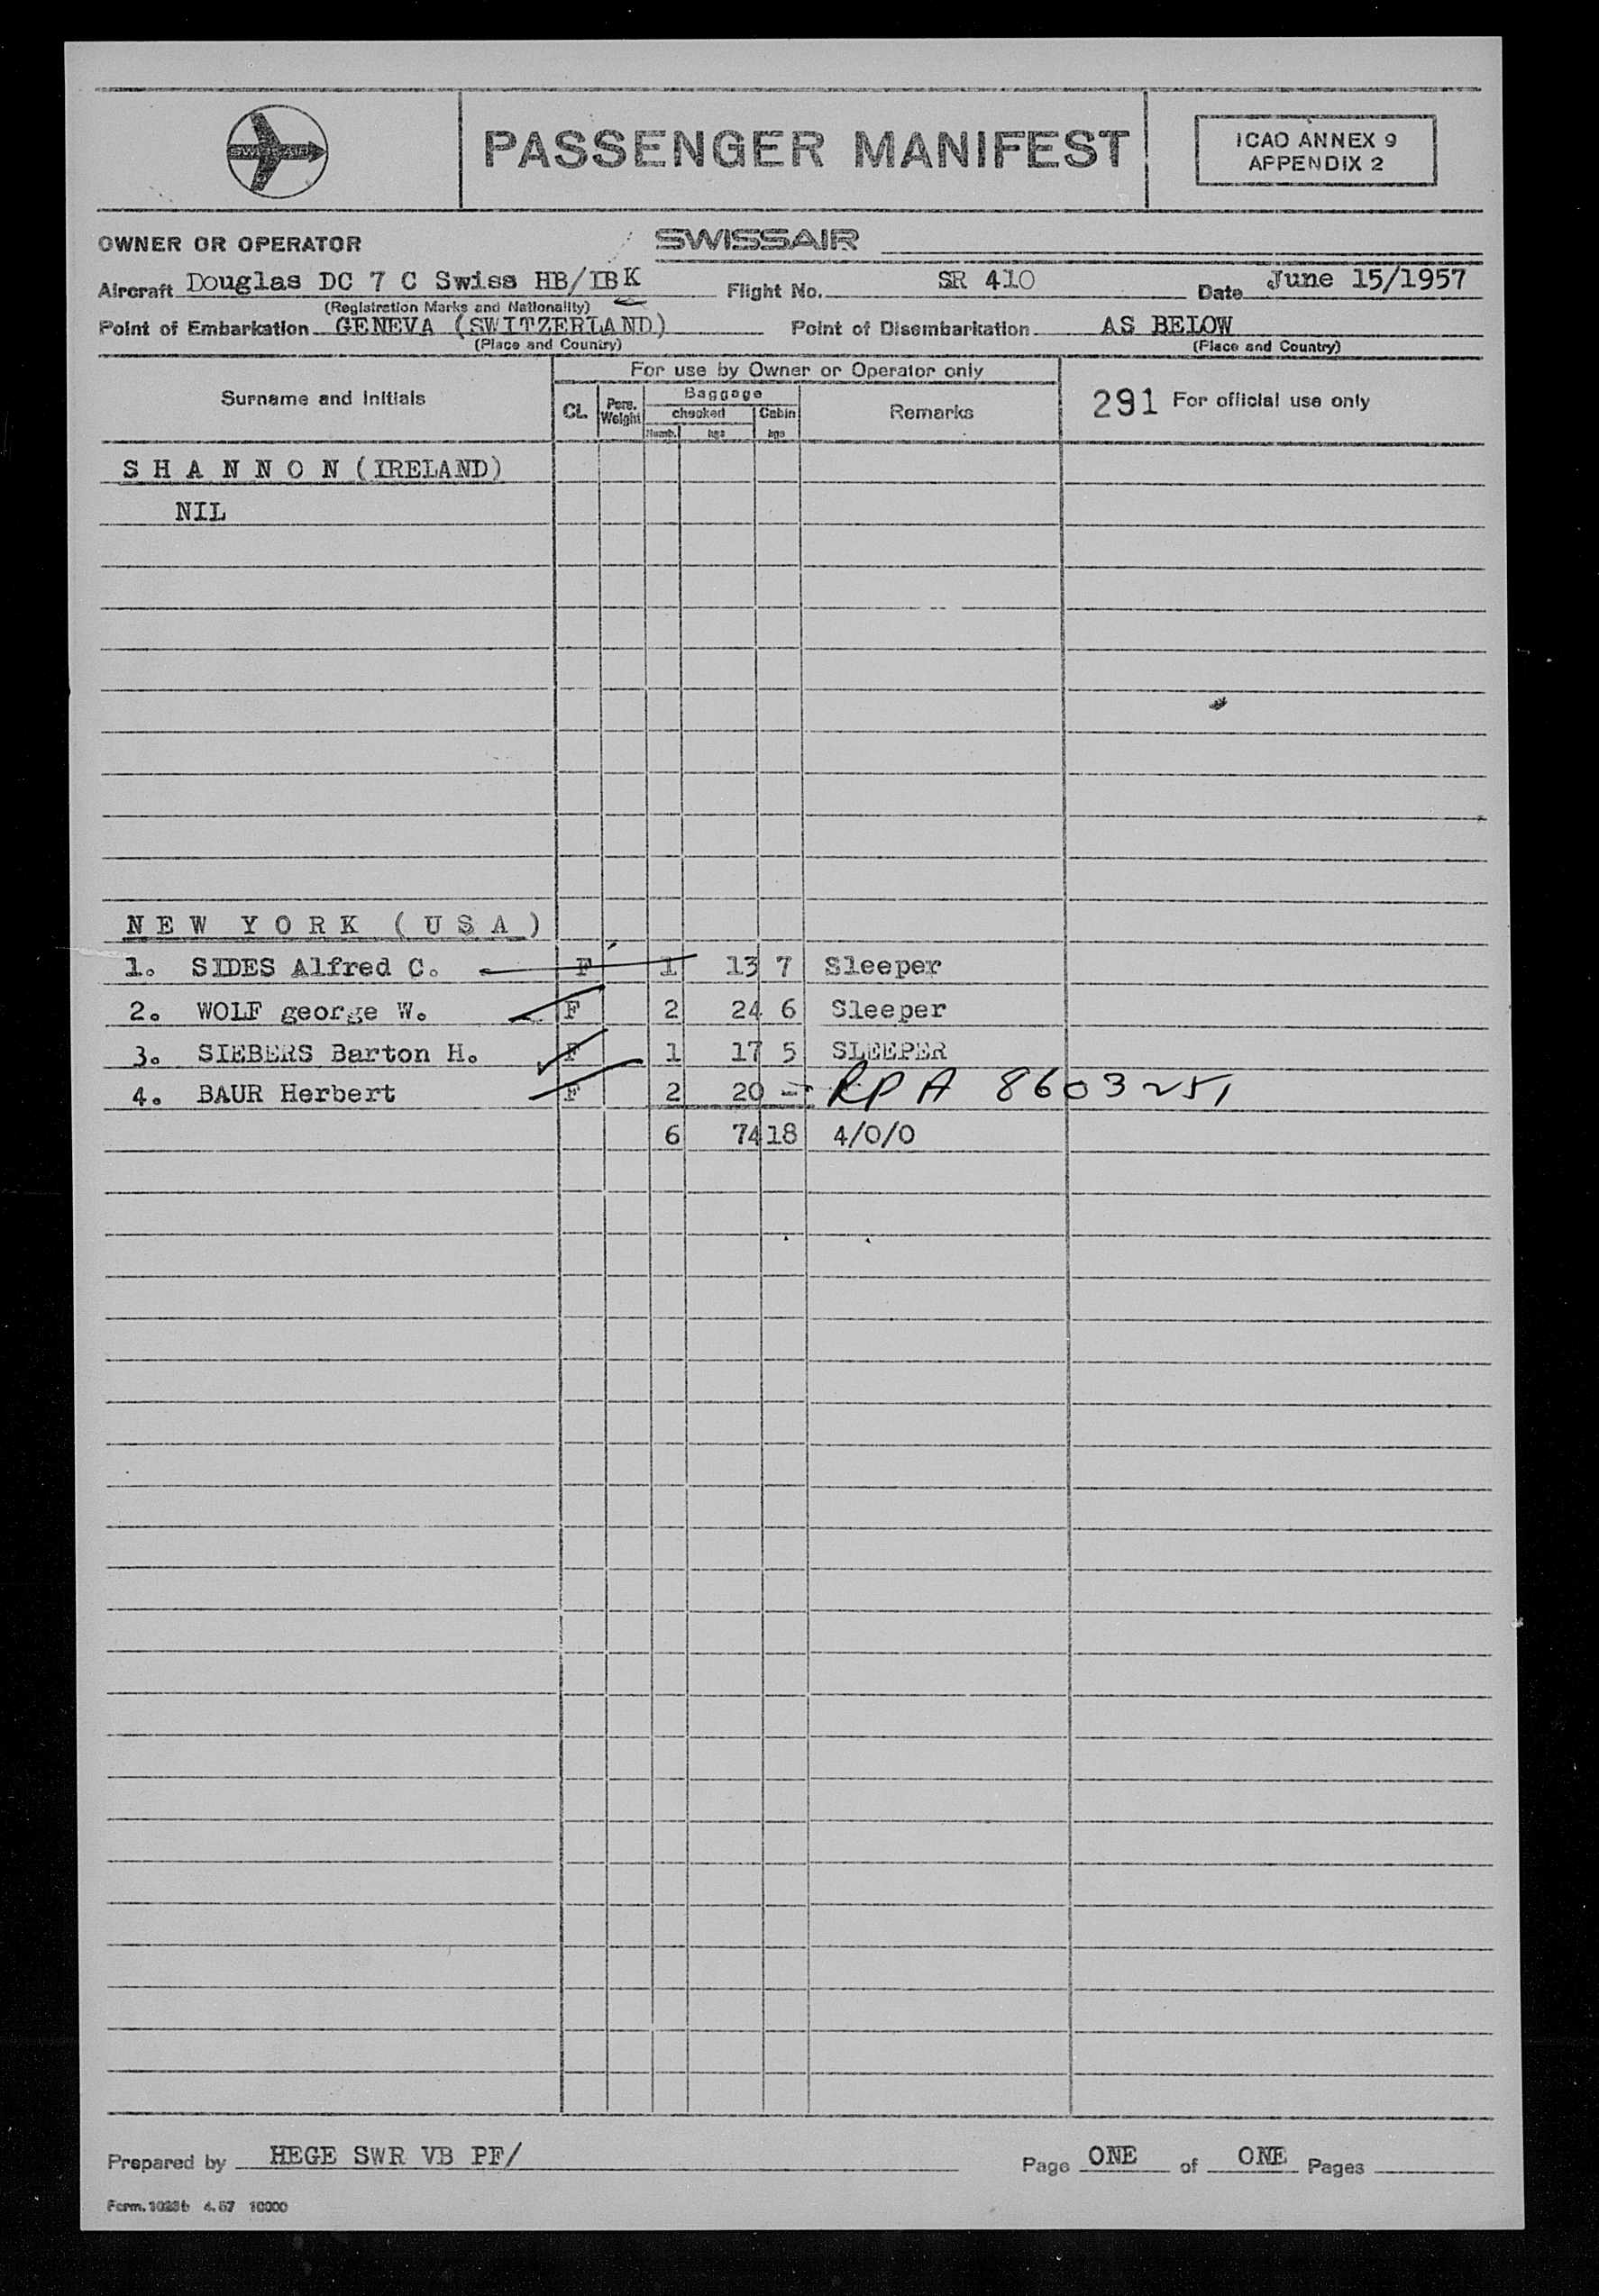 SWISSAIR
PASSENGER MANIFEST
ICAO ANNEX 9
APPENDIX 2
OWNER OR OPERATOR SWISSAIR
Aircraft Douglas DC 7 C Swiss HB/IBK Flight No. SR 410 Date June 15/1957
(Registration Marks and Nationality)
Point of Embarkation GENEVA (SWITZERLAND) Point of Disembarkation AS BELOW
(Place and Country) (Place and Country)
For use by Owner or Operator only
Surname and Initials CL. Pers. Weight Baggage checked Cabin Numb. kgs kgs Remarks 291 For official use only
S H A N N O N (IRELAND)
NIL
N E W Y O R K ( U S A )
1. SIDES Alfred C. F 1 13 7 Sleeper
2. WOLF george W. F 2 24 6 Sleeper
3. SIEBERS Barton H. F 1 17 5 SLEEPER
4. BAUR Herbert F 2 20 - RPA 8603251
6 74 18 4/0/0
Prepared by HEGE SWR VB PF/ Page ONE of ONE Pages
Form. 1023b 4.57 10000